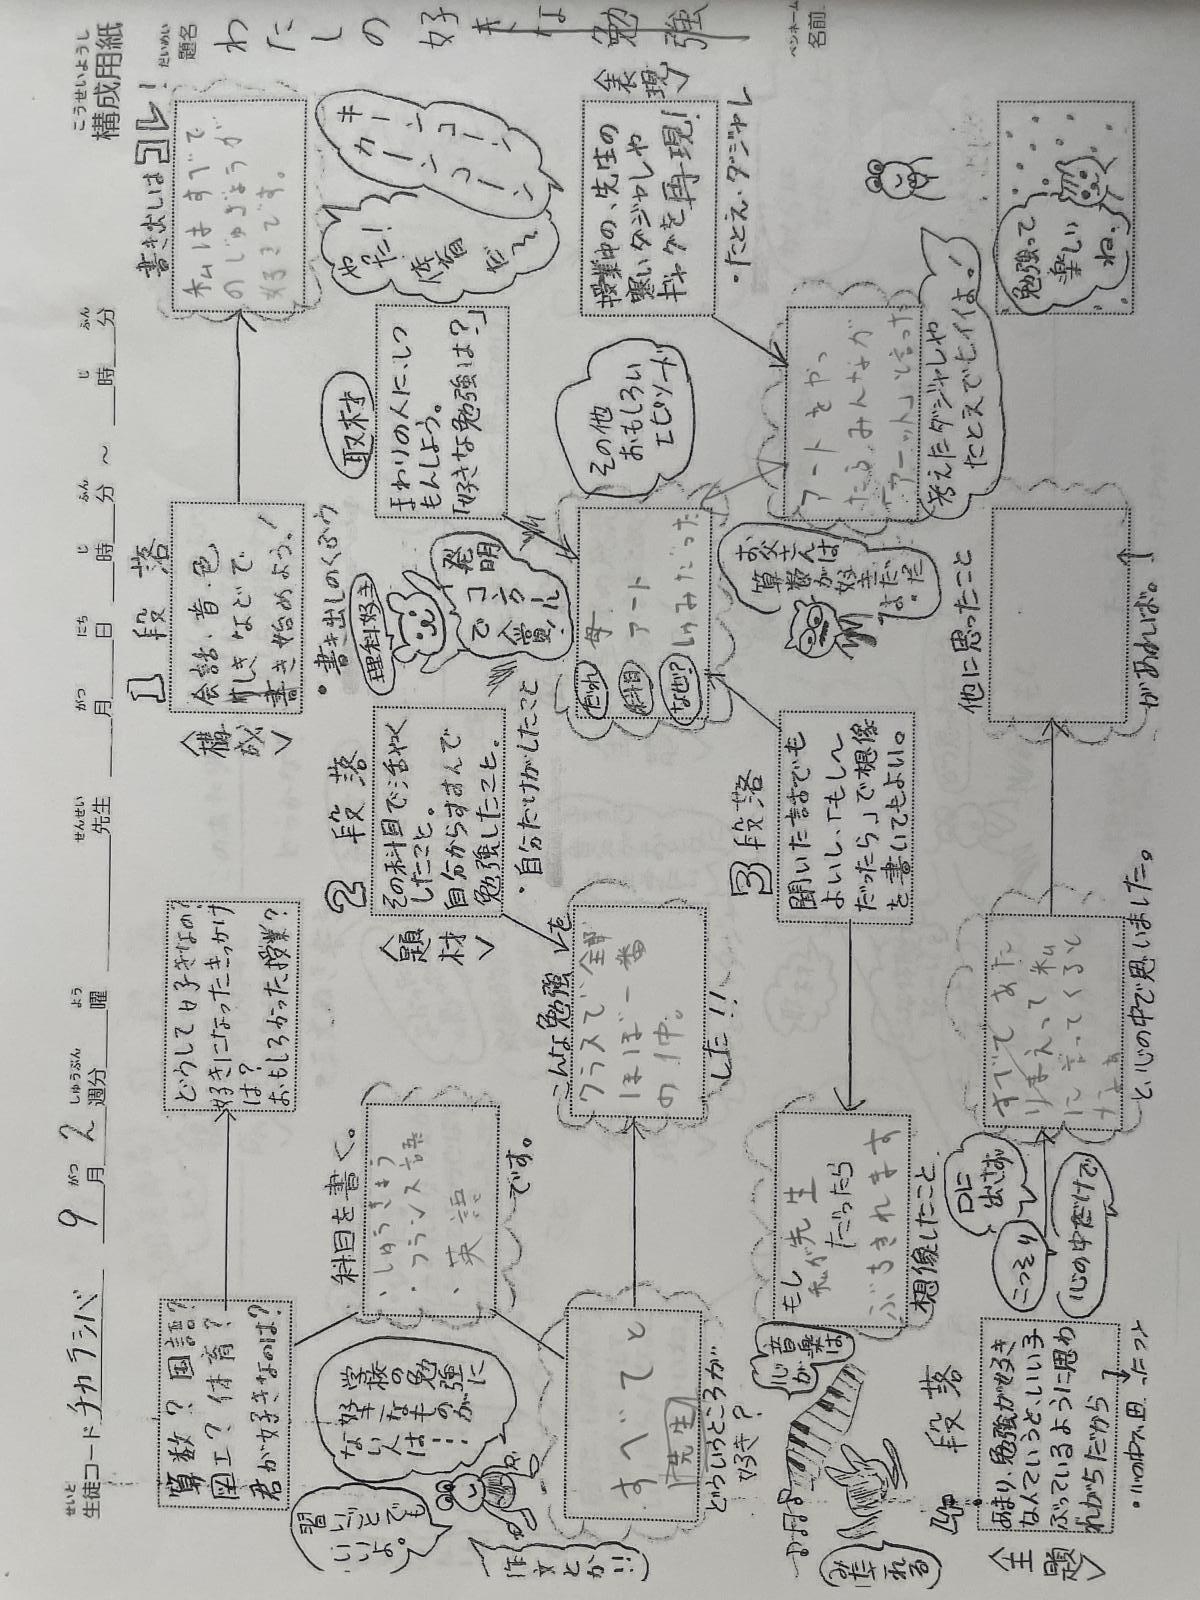 構成用紙
こうせいようし
生徒コード チカラシバ 9月2週分 曜 先生 月 日 時 分 ～ 時 分
せいと がつ しゅうぶん よう せんせい がつ にち じ ふん じ ふん
題名
だいめい
わたしの好きな勉強
名前
ペンネーム
1段落
〈構成〉
会話・音・色
などで
書き始めよう！
・書き出しのくふう
書き出しはコレ！
私はすべて
のじゅぎょうが
好きです。
キーンコーン
カーンコーン
やった！
体育
だ～
算数？国語？
図工？体育？
君が好きなのは？
どうして好きなの？
好きになったきっかけ
は？
おもしろかった授業？
科目を書く。
・しゅうきょう
・フランス語
・英語
です。
習いごとでも
いいよ。
学校の勉強に
好きなものが
ない人は……
作文とか!!
すべてと
先生
どういうところが
好き？
2段落
〈題材〉
その科目で活やく
したこと。
自分からすすんで
勉強したこと。
・自分だけがしたこと
こんな勉強を
クラスで全部
ほぼ一番
の中。
した!!
理科好き
発明
コンクール
で
入賞!!
取材
まわりの人にしつ
もんしよう。
「好きな勉強は？」
だれ 母
科目 アート
なぜ!? しゅみだった
その他
おもしろい
エピソード
〈表現〉
授業中の、先生の
寒いダジャレや
ギャグを再現！
・たとえ・ダジャレ
アートをやっ
たら みんなが
「アーット」と言った
考えたダジャレや
たとえでヒイイよ！
お父さんは
算数が
好きだった
よ。
3段落
聞いた話でも
よいし、「もし～
だったら」で想像
を書いてもよい。
もし
私が先生
だったら
ぶちきれます
想像したこと
音楽は
心が
みだれる
4段落
〈主題〉
あまり、勉強が好き
なんていうと、いい子
ぶっているように思わ
れがちだから
口に
出さず
こっそり
心の中だけで
すべて あた
りまえって 私
に言ってくると
と心の中で思いました。
他に思ったこと
があれば。
勉強って
楽しい
ね。